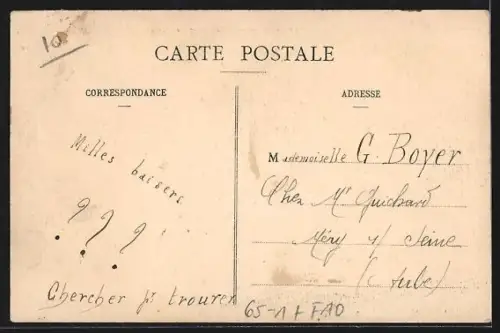 10
CARTE POSTALE
CORRESPONDANCE
ADRESSE
Milles baisers
? ? ?
Chercher pr trouver
Mademoiselle G. Boyer
Chez Mr Guichard
Méry s/ Seine
(Aube)
65-1 + F10